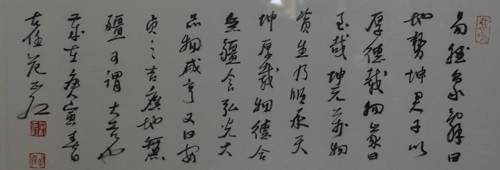 易經象辭曰
地勢坤君子以
厚德載物彖曰
至哉坤元萬物
資生乃順承天
坤厚載物德合
無疆含弘光大
品物咸亨又曰安
貞之吉應地無
疆可謂大哉也
歲在庚寅春日
范